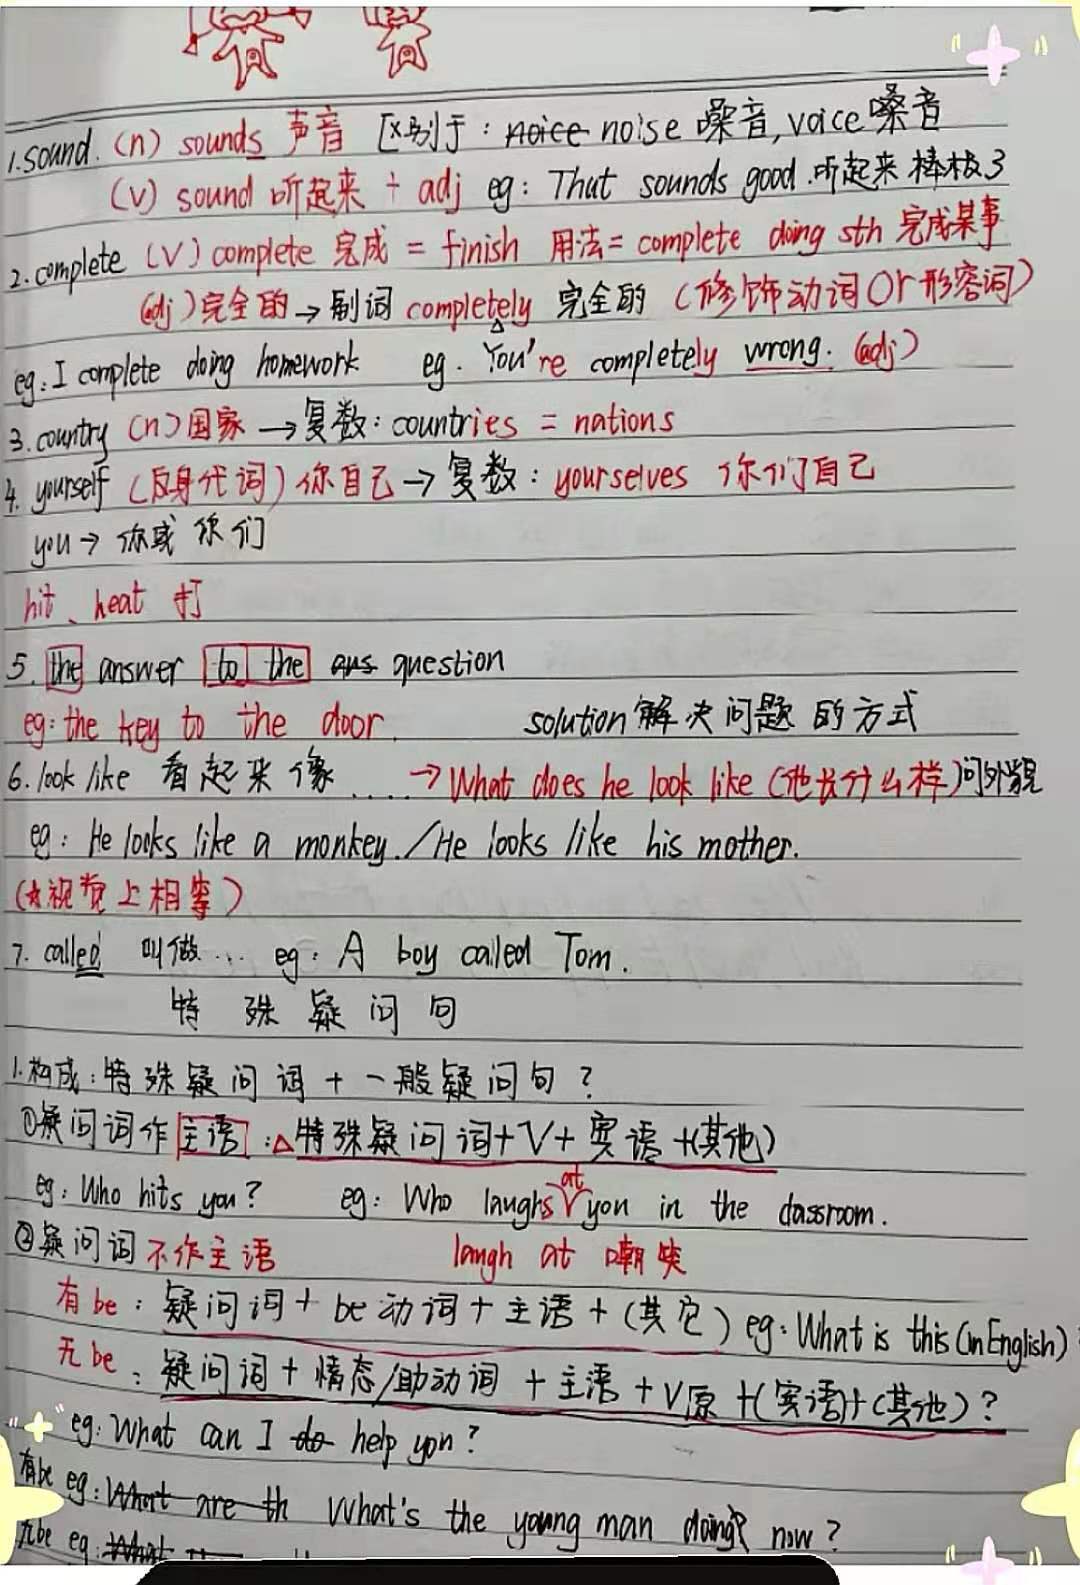 1.sound. (n) sounds 声音 区别于：noice noise 噪音, voice 嗓音
(v) sound 听起来 + adj eg: That sounds good.听起来棒极了
2.complete (V) complete 完成 = finish 用法= complete doing sth 完成某事
(adj) 完全的→副词 completely 完全的 (修饰动词or形容词)
eg: I complete doing homework eg. You're completely wrong. (adj)
3.country (n) 国家 → 复数: countries = nations
4. yourself (反身代词) 你自己→复数: yourselves 你们自己
you→ 你或你们
hit、heat 打
5. the answer to the ans question
eg: the key to the door. solution 解决问题的方式
6.look like 看起来像.... →What does he look like (他长什么样)问外貌
eg: He looks like a monkey./He looks like his mother.
(☆视觉上相等)
7. called 叫做... eg: A boy called Tom.
特殊疑问句
1.构成: 特殊疑问词 + 一般疑问句?
①疑问词作主语:△特殊疑问词+V+宾语+(其他)
eg: Who hits you? eg: Who laughs at you in the classroom.
②疑问词不作主语 laugh at 嘲笑
有be: 疑问词 + be动词 + 主语 + (其它) eg: What is this (in English)?
无be: 疑问词 + 情态/助动词 + 主语 + V原 + (宾语)+ (其他)?
eg: What can I do help you?
有be eg: What are th What's the young man doing? now?
无be eg: What